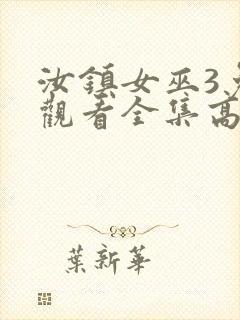 汝鎮女巫3
觀看全集高
葉新華